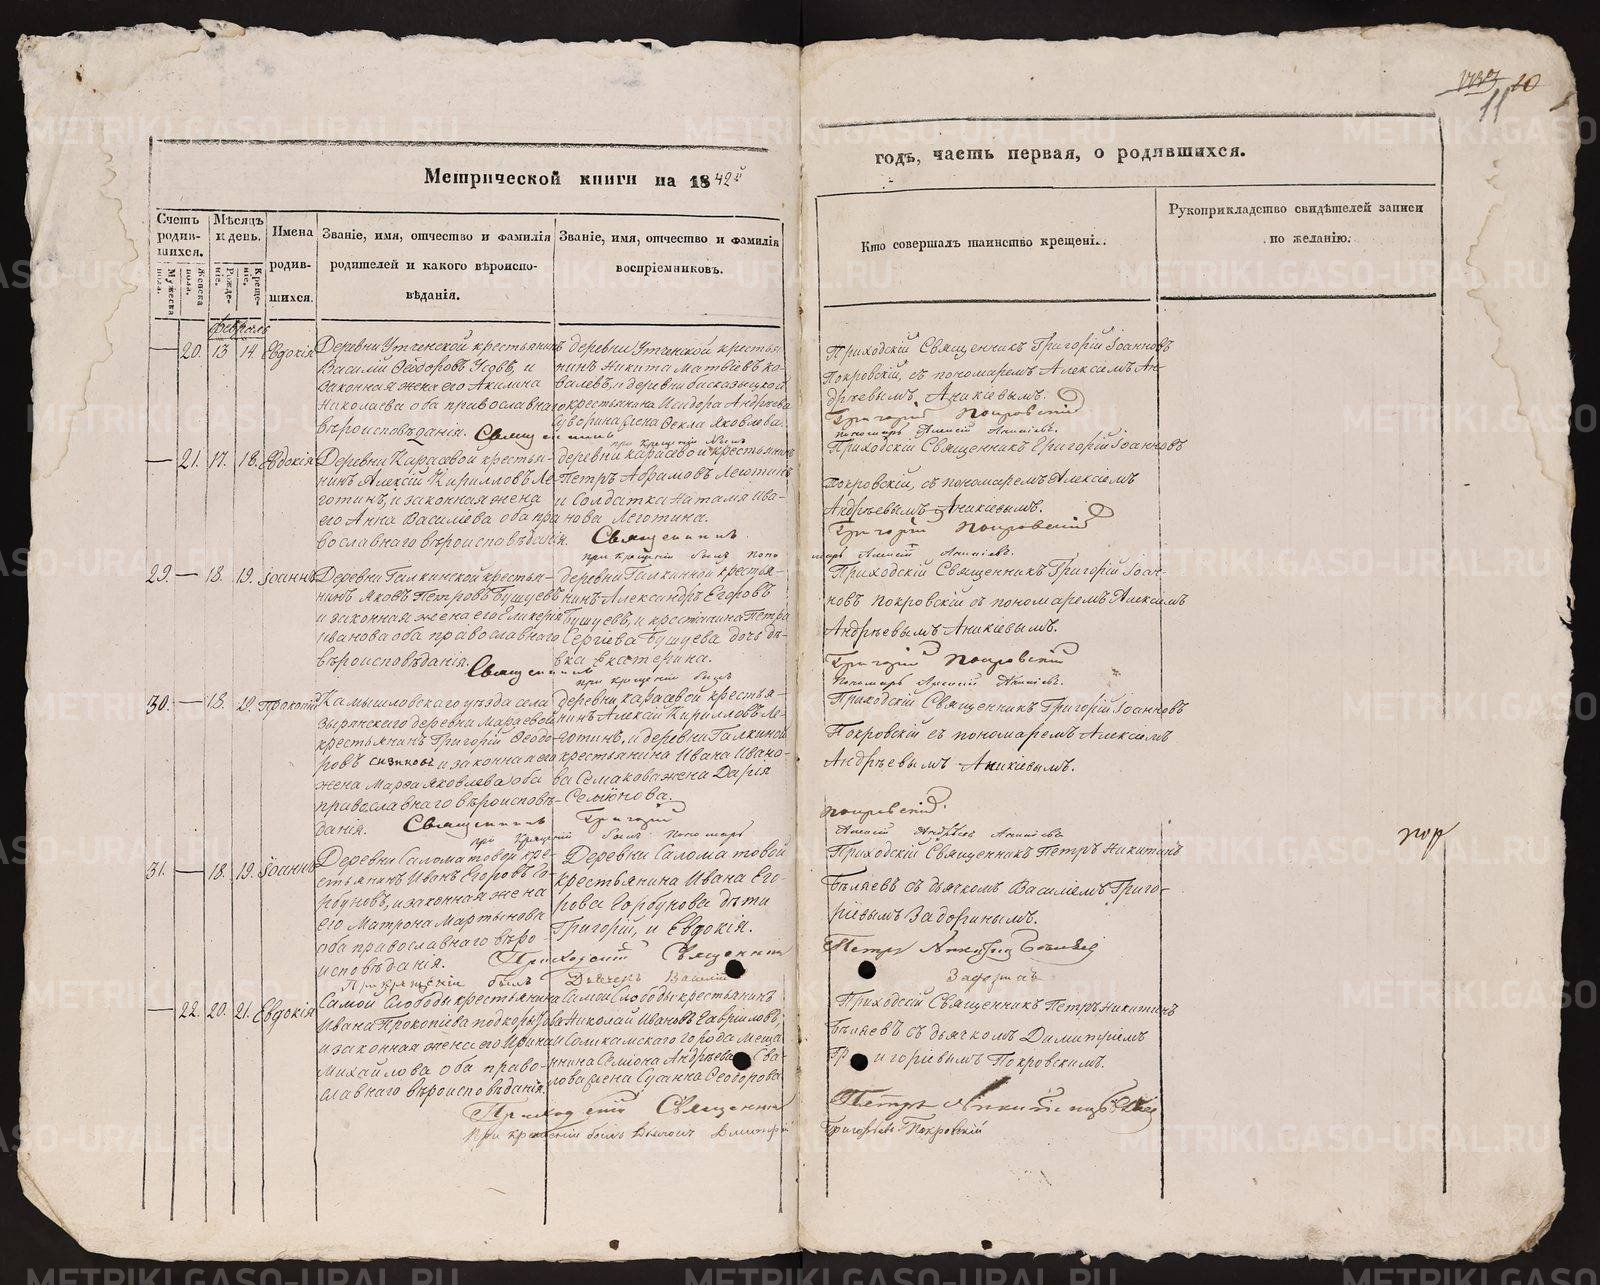 11
10
Метрической книги на 1842й
годъ, часть первая, о родившихся.
Счетъ родив-шихся.
Мужеска пола.
Женска пола.
Мѣсяцъ и день.
Рожде-нiе.
Креще-нiе.
Имена родив-шихся.
Званiе, имя, отчество и фамилiя родителей и какого вѣроиспо-вѣданiя.
Званiе, имя, отчество и фамилiя воспрiемниковъ.
Кто совершалъ таинство крещенi..
Рукоприкладство свидѣтелей записи по желанiю.
февраль
— 20. 13 14 Евдокiя
Деревни Утченской крестьянинъ
Василiй Ѳеодоровъ
законная жена его Акилина
Николаева оба православнаго
вѣроисповѣданiя. Священникъ
деревни Утченской крестья-
нинъ Никита Матвѣевъ ко-
валевъ, и деревни
крестьянина Исидора Андрѣева
Суворина жена Ѳекла Яковлева.
при крещенiи былъ
Приходскiй Священникъ Григорiй Iоанновъ
Покровскiй, съ пономаремъ Алексiемъ Ан-
дрѣевымъ Аникiевымъ.
Григорiй Покровскiй
пономарь Алексiй Аникiевъ.
— 21. 17. 18. Евдокiя
Деревни Карасевой крестья-
нинъ Алексiй Кирилловъ Ле-
готинъ, и законная жена
его Анна Василiева оба пра
вославнаго вѣроисповѣданiя.
деревни карасевой крестьянинъ
Петръ Абрамовъ Леготинъ
и Солдатка Наталiя Ива-
нова Леготина.
Священникъ
при крещенiи былъ поно
Приходскiй Священникъ Григорiй Iоанновъ
Покровскiй, съ пономаремъ Алексiемъ
Андрѣевымъ Аникiевымъ.
Григорiй Покровскiй
марь Алексiй Аникiевъ.
29. — 18. 19. Iоаннъ
Деревни Галкинской крестья-
нинъ Яковъ Петровъ Бушуевъ
и законная жена его Гликерiя
Иванова оба православнаго
вѣроисповѣданiя.
Священникъ
деревни Галкиной крестья-
нинъ Александръ Егоровъ
Бушуевъ, и крестьянина Петра
Сергiева Бушуева дочь дѣ-
вка Екатерина.
при крещенiи былъ
Приходскiй Священникъ Григорiй Iоан-
новъ Покровскiй съ пономаремъ Алексiемъ
Андрѣевымъ Аникiевымъ.
Григорiй Покровскiй
Пономарь Алексiй Аникiевъ.
30. — 18. 19. Прокопiй
Камышловскаго уѣзда села
Зырянскаго деревни Мардевой
крестьянинъ Григорiй Ѳеодо-
ровъ и законная его
жена Марѳа Яковлева оба
православнаго вѣроисповѣ-
данiя. Священникъ Григорiй
деревни карасевой крестья-
нинъ Алексiй Кирилловъ Ле-
готинъ, и деревни Галкиной
крестьянина Ивана Ивано-
ва Семакова жена Дарiя
Семiонова.
при крещенiи былъ пономарь
Приходскiй Священникъ Григорiй Iоанновъ
Покровскiй съ пономаремъ Алексiемъ
Андрѣевымъ Аникiевымъ.
Покровскiй.
Алексiй Андрѣевъ Аникiевъ
31. — 18. 19. Iоаннъ
Деревни Саломатовой кре-
стьянинъ Иванъ Егоровъ Го-
рбуновъ, и законная жена
его Матрона Мартынова
оба православнаго вѣро-
исповѣданiя.
Деревни Саломатовой
крестьянина Ивана Его-
рова Горбунова дѣти
Григорiй, и Евдокiя.
Приходскiй Священникъ
При крещенiи былъ Дьячекъ Василiй
Приходскiй Священникъ Петръ Никитинъ
Бѣляевъ съ дьячкомъ Василiемъ Григо-
рiевымъ Задоринымъ.
Петръ Никитинъ Бѣляевъ
Задоринъ
— 22. 20. 21. Евдокiя
Самой Слободы крестьянина
Ивана Прокопiева
и законная жена его Ирина
Михайлова оба право-
славнаго вѣроисповѣданiя.
Самой Слободы крестьянинъ
Николай Ивановъ Гавриловъ,
и Соликамскаго города меща
нина Семiона Андрѣева
жена Сусанна Ѳеодорова
Приходскiй Священникъ
При крещенiи былъ Дьячекъ Димитрiй
Приходскiй Священникъ Петръ Никитинъ
Бѣляевъ съ дьячкомъ Димитрiемъ
Григорiевымъ Покровскимъ.
Петръ Никитинъ Бѣляевъ
Григорьевъ Покровскiй
METRIKI.GASO-URAL.RU